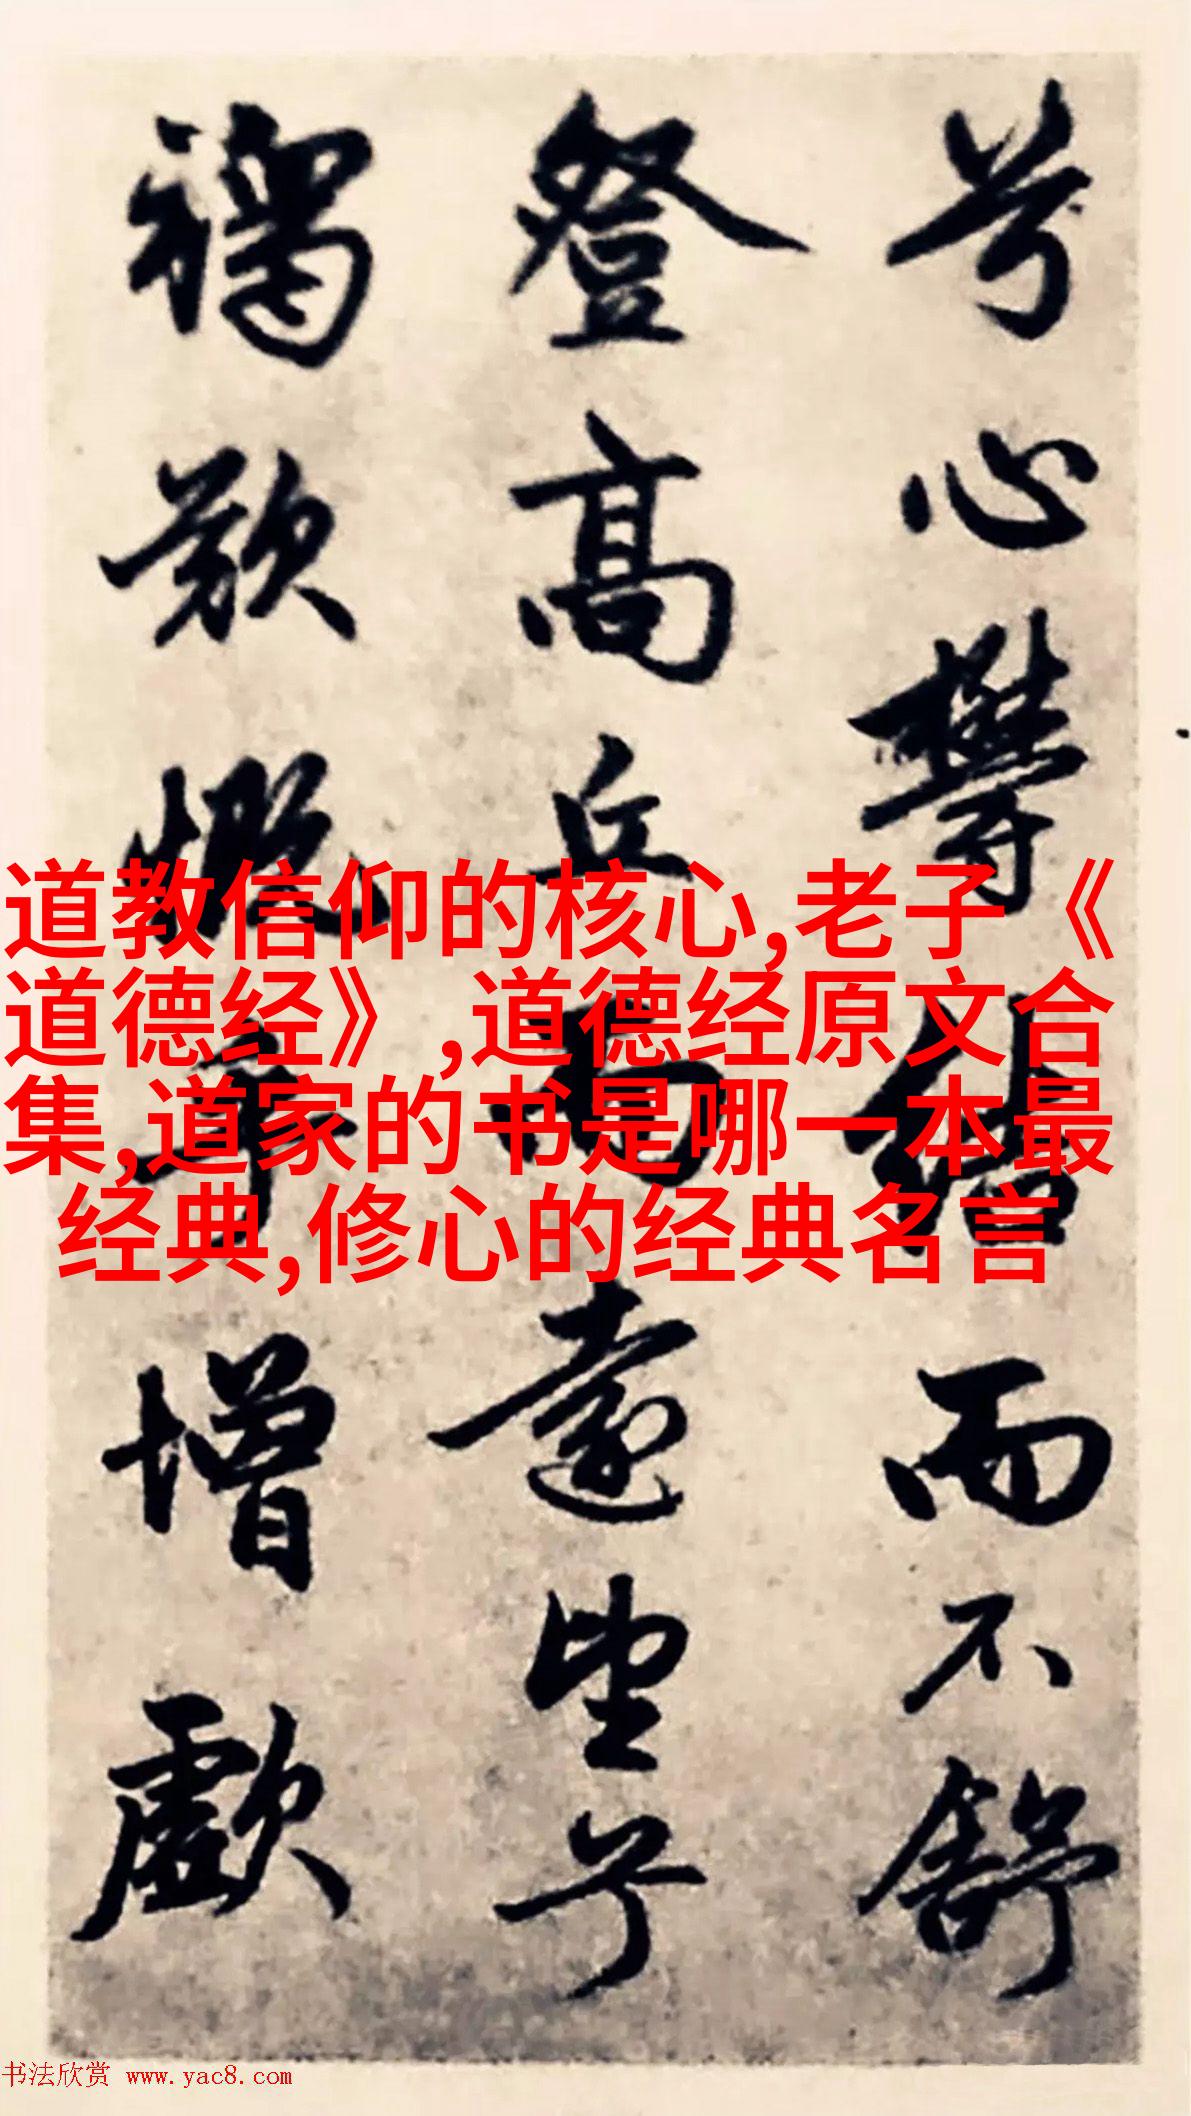 兮心攀結而不舒
登高丘而遠望兮
增歔
道教信仰的核心,老子《
道德经》,道德经原文合
集,道家的书是哪一本最
经典,修心的经典名言
书法欣赏 www.yac8.com